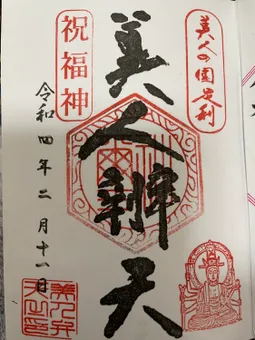 美人の国足利
美人辨天
祝福神
令和四年二月十一日